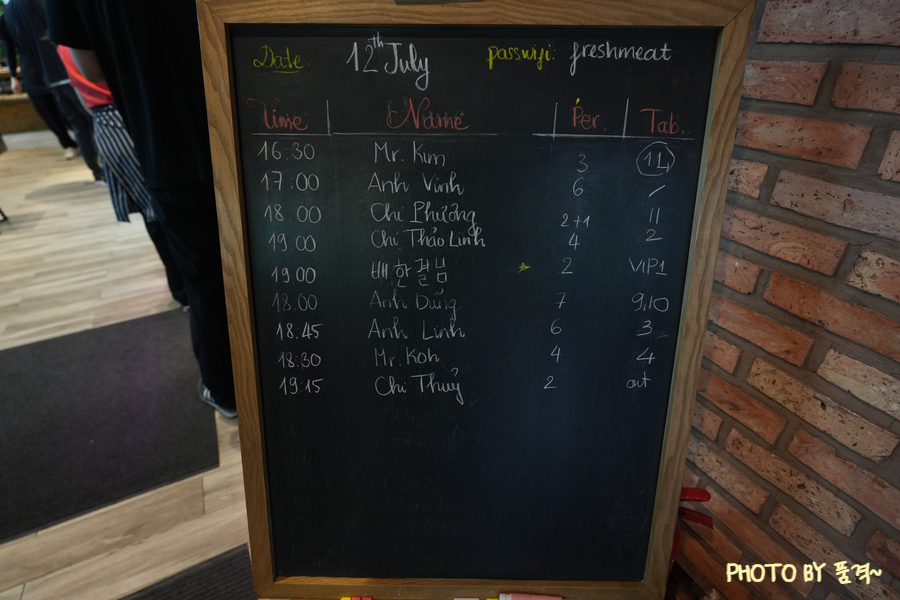 Date: 12th July passwifi: freshmeat
Time Name Per. Tab.
16:30 Mr. Kim 3 14
17:00 Anh Vinh 6 /
18.00 Chi Phương 2+1 11
19.00 Chị Thảo Linh 4 2
19.00 배한결님 2 VIP1
18.00 Anh Dũng 7 9,10
18.45 Anh Linh 6 3
18:30 Mr. Koh 4 4
19:15 Chi Thuỷ 2 out
PHOTO BY 품격~